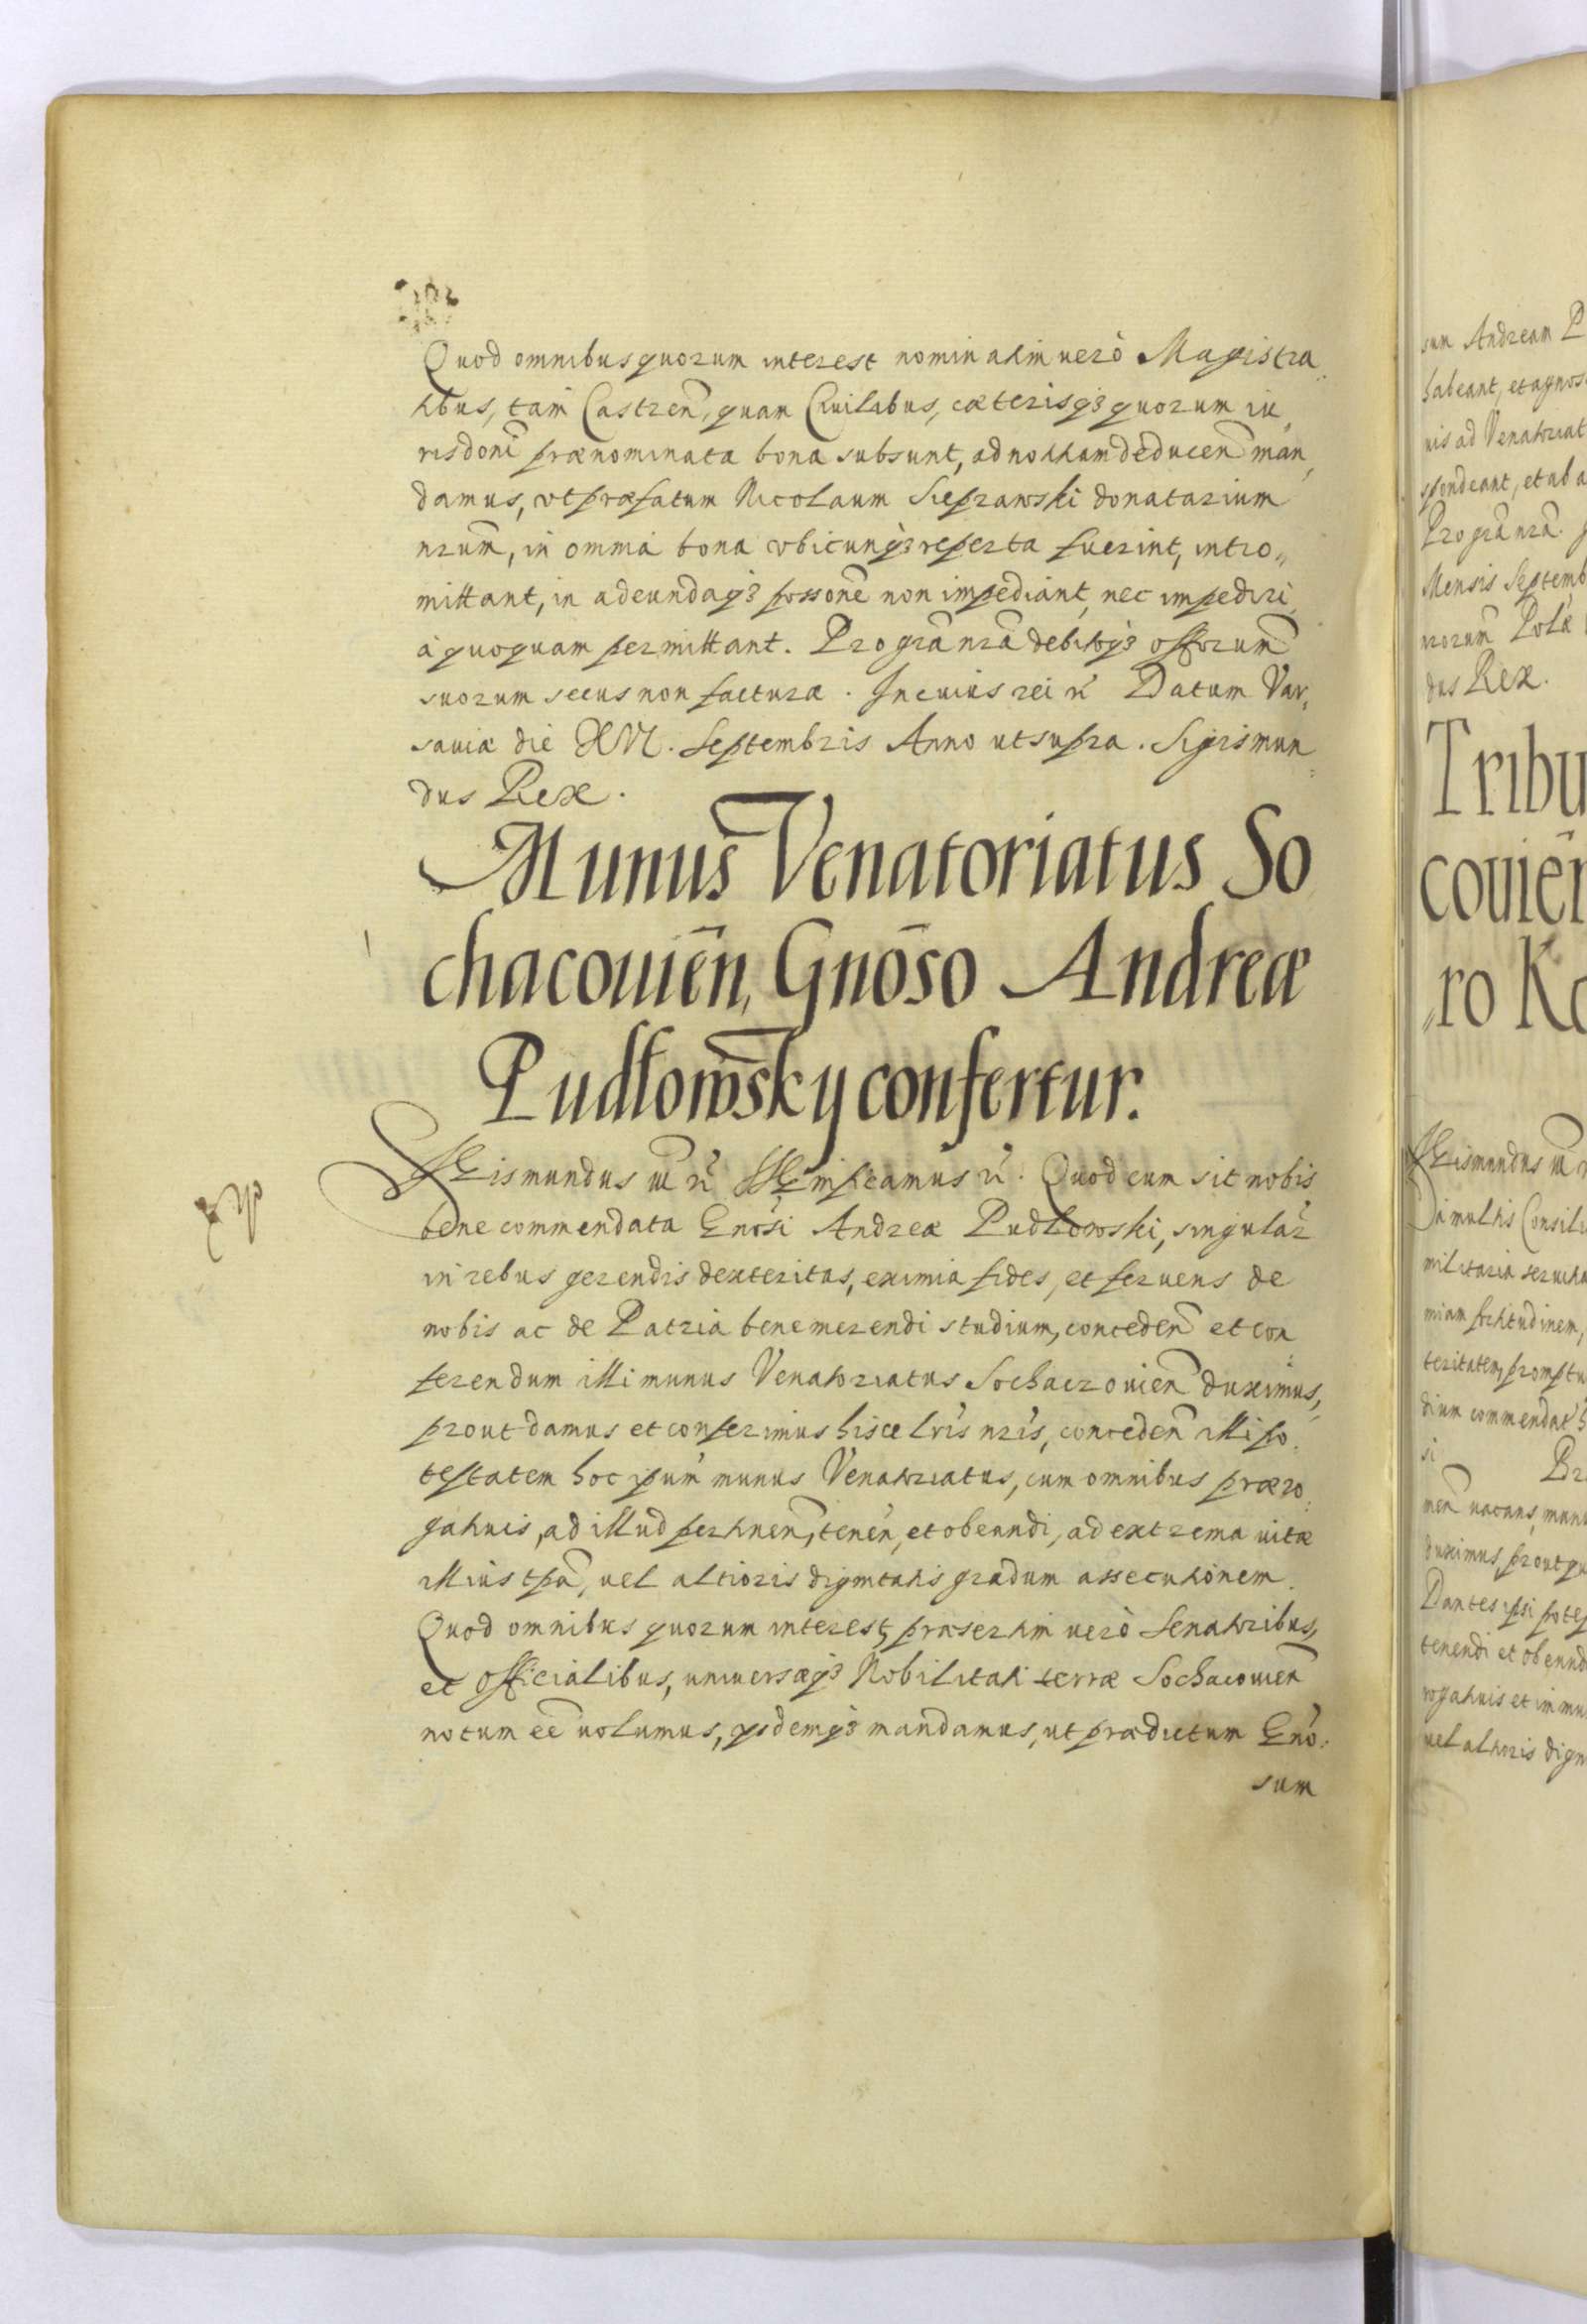 Quod omnibus quorum interest nominatim uerò Magistra
tibus, tam Castren̄, quam Ciuilibus, cæterisq3 quorum iu
risdoni prænominata bona subsunt, ad notitiam deducen̄ man
damus, vt præfatum Nicolaum Sieprawski donatarium
nrum̄, in omnia bona vbicunq3 reperta fuerint, intro„
mittant, in adeundaq3 possone non impediant, nec impediri
à quoquam permittant. Pro gr̄a nr̄a debitoq3 offorum̄
suorum secus non facturæ. In cuius rei &c̃ Datum Var,
sauiæ die XVI. Septembris Anno ut supra. Sigismun
dus Rex.
Munus Venatoriatus So
chacouien̄, Gnōso Andreæ
Pudłowsky confertur.
Sigismundus III &c̃ Significamus &c̃. Quod cum sit nobis
bene commendata Gnōsi Andreæ Pudłowski, singular̃
in rebus gerendis dexteritas, eximia fides, et feruens de
nobis ac de Patria benemerendi studium, conceden̄ et con
ferendum illi munus Venatoriatus Sochaczouien̄ duximus,
prout damus et conferimus hisce lrīs nrīs, conceden̄ illi po
testatem hoc ipsum munus Venatoriatus, cum omnibus præro
gatiuis, ad illud pertinen̄, tenen̄, et obeundi, ad extrema uitæ
illius tpā, uel altioris dignitatis gradum assecutionem.
Quod omnibus quorum interest, præsertim uerò Senatoribus,
et Officialibus, uniuersæq3 Nobilitati terræ Sochacouien̄
notum eē uolumus, ijsdemq3 mandamus, ut prædictum Gnō:
sum
sum Andream P
habeant, et agnos
nis ad Venatoriat
spondeant, et ab a
Pro gr̄a nr̄a.
Mensis Septemb
nrorum̄ Polæ
dus Rex.
Tribu
couien̄
ro Ko
Sigismundus III
à multis Consili
militaria seruitia
miam fortitudinem,
teritatem, promptu
dium commendat
si
men̄ uacans, mun
duximus, prout qu
Dantes ipsi potes
tenendi et obeund
rogatiuis et immu
uel altioris dign